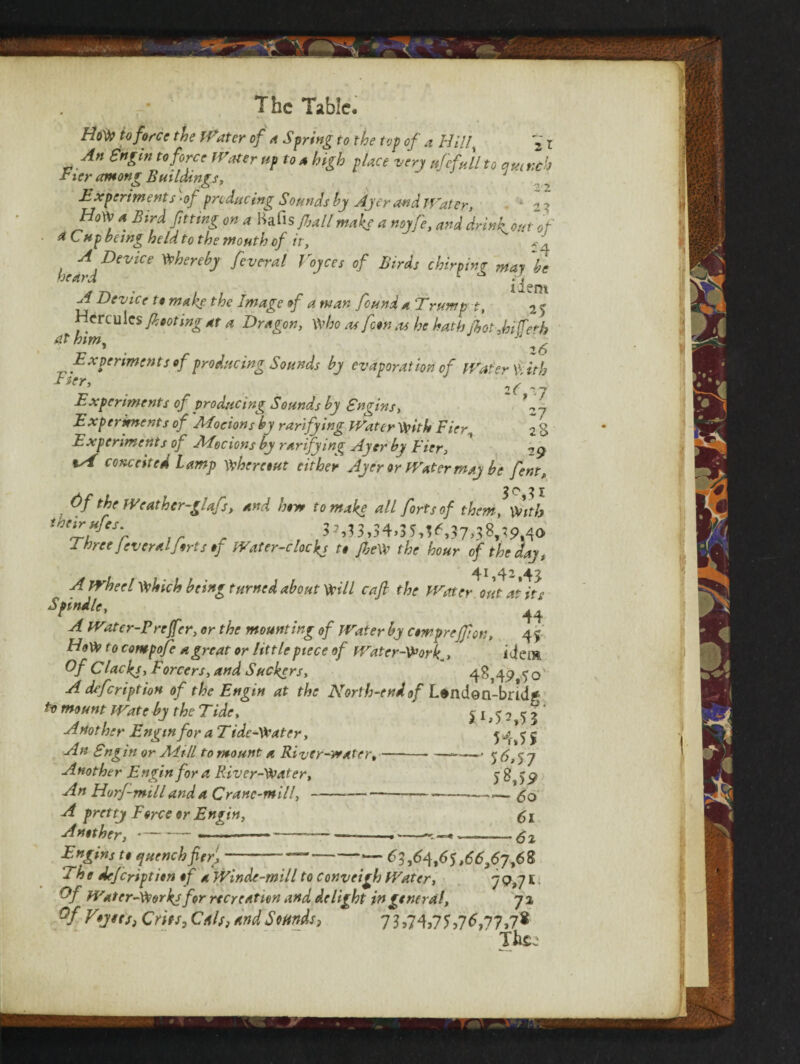 The Table.
How to force the Water of a Spring to the top of a Hill, 21
An Engin to force Water up to a high place very usefull to quench
Fier among Buildings, 22
Experiments of producing Sounds by Ayer and Water, 23
How a Bird sitting on a Basis shall make a noyse, and drink out of
a Cup being held to the mouth of it, 24
A Device whereby several Voyces of Birds chirping may be
heard idem
A Device to make the Image of a man sound a Trumpt, 25
Hercules shooting at a Dragon, who as soon as he hath shot, hisseth
at him, 26
Experiments of producing Sounds by evaporation of Water with
Fier, 26,27
Experiments of producing Sounds by Engins, 27
Experiments of Mocions by rarifying Water with Fier, 28
Experiments of Mocions by rarifying Ayer by Fier, 29
A conceited Lamp whereout either Ayer or Water may be sent,
30,31
Of the Weather-glass, and how to make all sorts of them, with
their uses. 32,33,34,35,36,37,38,39,40
Three several sorts of Water-clocks to shew the hour of the day,
41,42,43
A Wheel which being turned about will cast the Water out at its
Spindle, 44
A Water-Presser, or the mounting of Water by compression, 45
How to compose a great or little piece of Water-work, idem
Of Clacks, Forcers, and Suckers, 48,49,50
A description of the Engin at the North-end of London-bridg
to mount Water by the Tide, 51,52,53
Another Engin for a Tide-water, 54,55
An Engin or Mill to mount a River-water, 56,57
Another Engin for a River-water, 58,59
An Hors-mill and a Crane-mill, 60
A pretty Force or Engin, 61
Another, 62
Engins to quench fier, 63,64,65,66,67,68
The description of a Winde-mill to conveigh Water, 70,71
Of Water-works for recreation and delight in general, 72
Of Voyces, Cries, Cals, and Sounds, 73,74,75,76,77,78
The